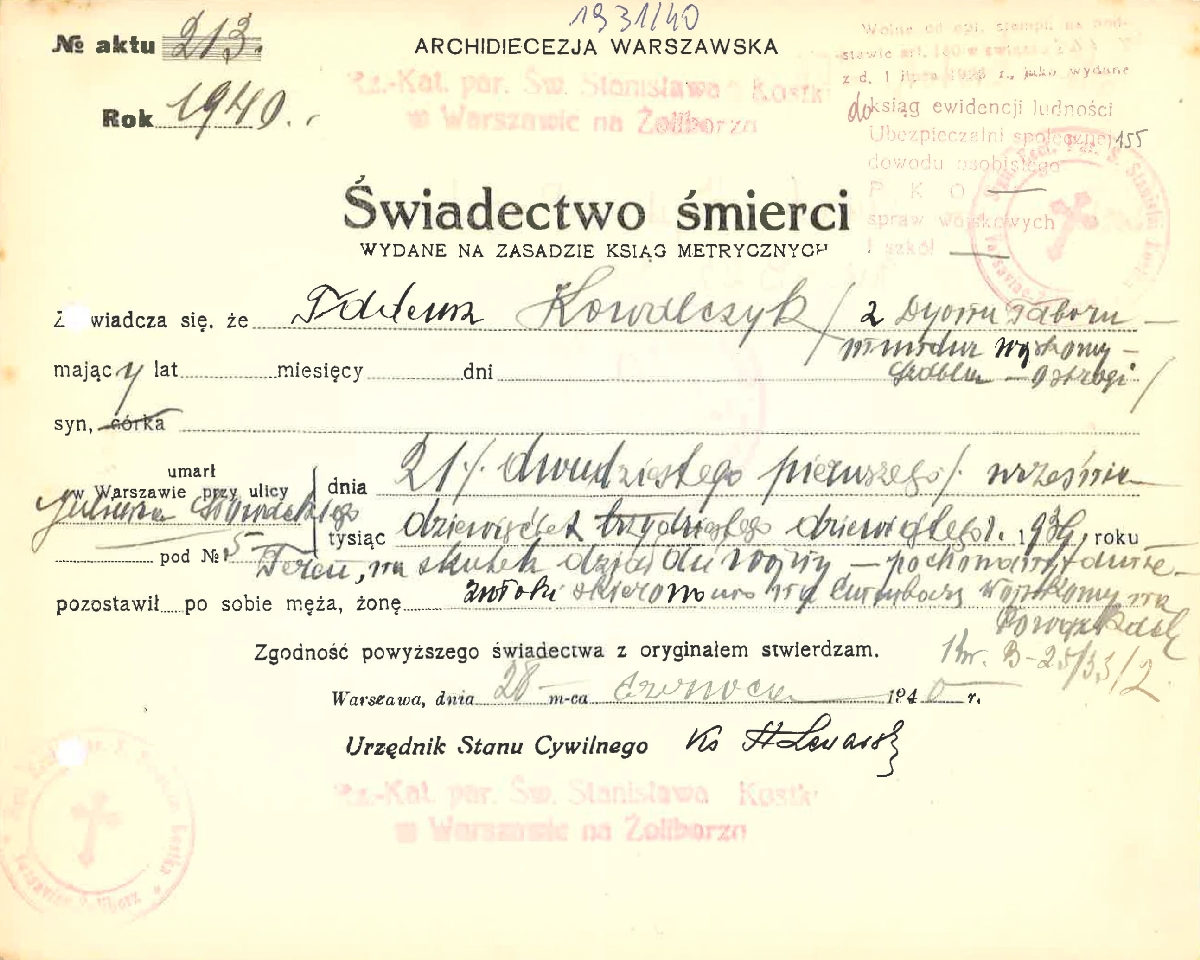 1931/40
№ aktu 213.
ARCHIDIECEZJA WARSZAWSKA
Wolne od opł. stempl. na pod-
stawie art. 160 w
z d. 1 lipca r., jako wydane
Rz.-Kat. par. Św. Stanisława Kostki
w Warszawie na Żoliborzu
Rok 1940.
do ksiąg ewidencji ludności
Ubezpieczalni społecznej 155
dowodu osobistego
P K O
spraw wojskowych
i szkół
Świadectwo śmierci
WYDANE NA ZASADZIE KSIĄG METRYCZNYCH
wiadcza się, że Tadeusz Kowalczyk / 2 Dyonu Taboru
mundur wojskowy –
mając lat miesięcy dni – ostrogi /
syn, córka
umarł
w Warszawie przy ulicy
dnia 21 /. dwudziestego pierwszego /. września
Juliusza Słowackiego
tysiąc dziewięćset trzydziestego dziewiątego r. 1939, roku
pod № 5
Teren, na skutek działań wojny – pochowany
pozostawił po sobie męża, żonę zwłoki skierowano na wojskowy na
Zgodność powyższego świadectwa z oryginałem stwierdzam.
Kw. B-25/33/2.
Warszawa, dnia 28 m-ca czerwca 1940 r.
Urzędnik Stanu Cywilnego Ks
Rz.-Kat. par. Św. Stanisława Kostki
w Warszawie na Żoliborzu